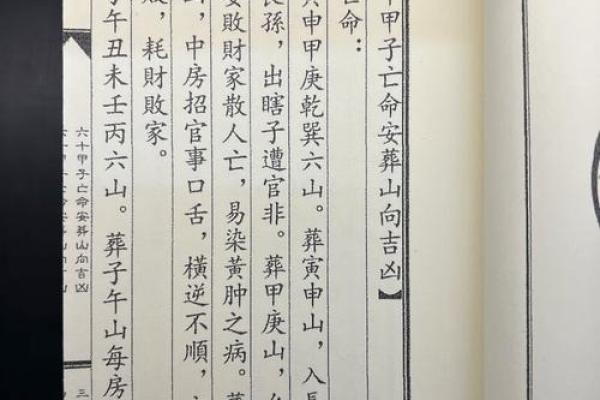 甲子亡命安葬山向吉凶】
亡命：
寅申甲庚乾巽六山。葬寅申山，入長
孫，出瞎子遭官非。葬甲庚山，
敗財家散人亡，易染黃肿之病。葬
，中房招官事口舌，橫逆不順，
，耗財敗家。
子午丑未壬丙六山。葬子午山每房
六十甲子亡命安葬山向吉凶
三